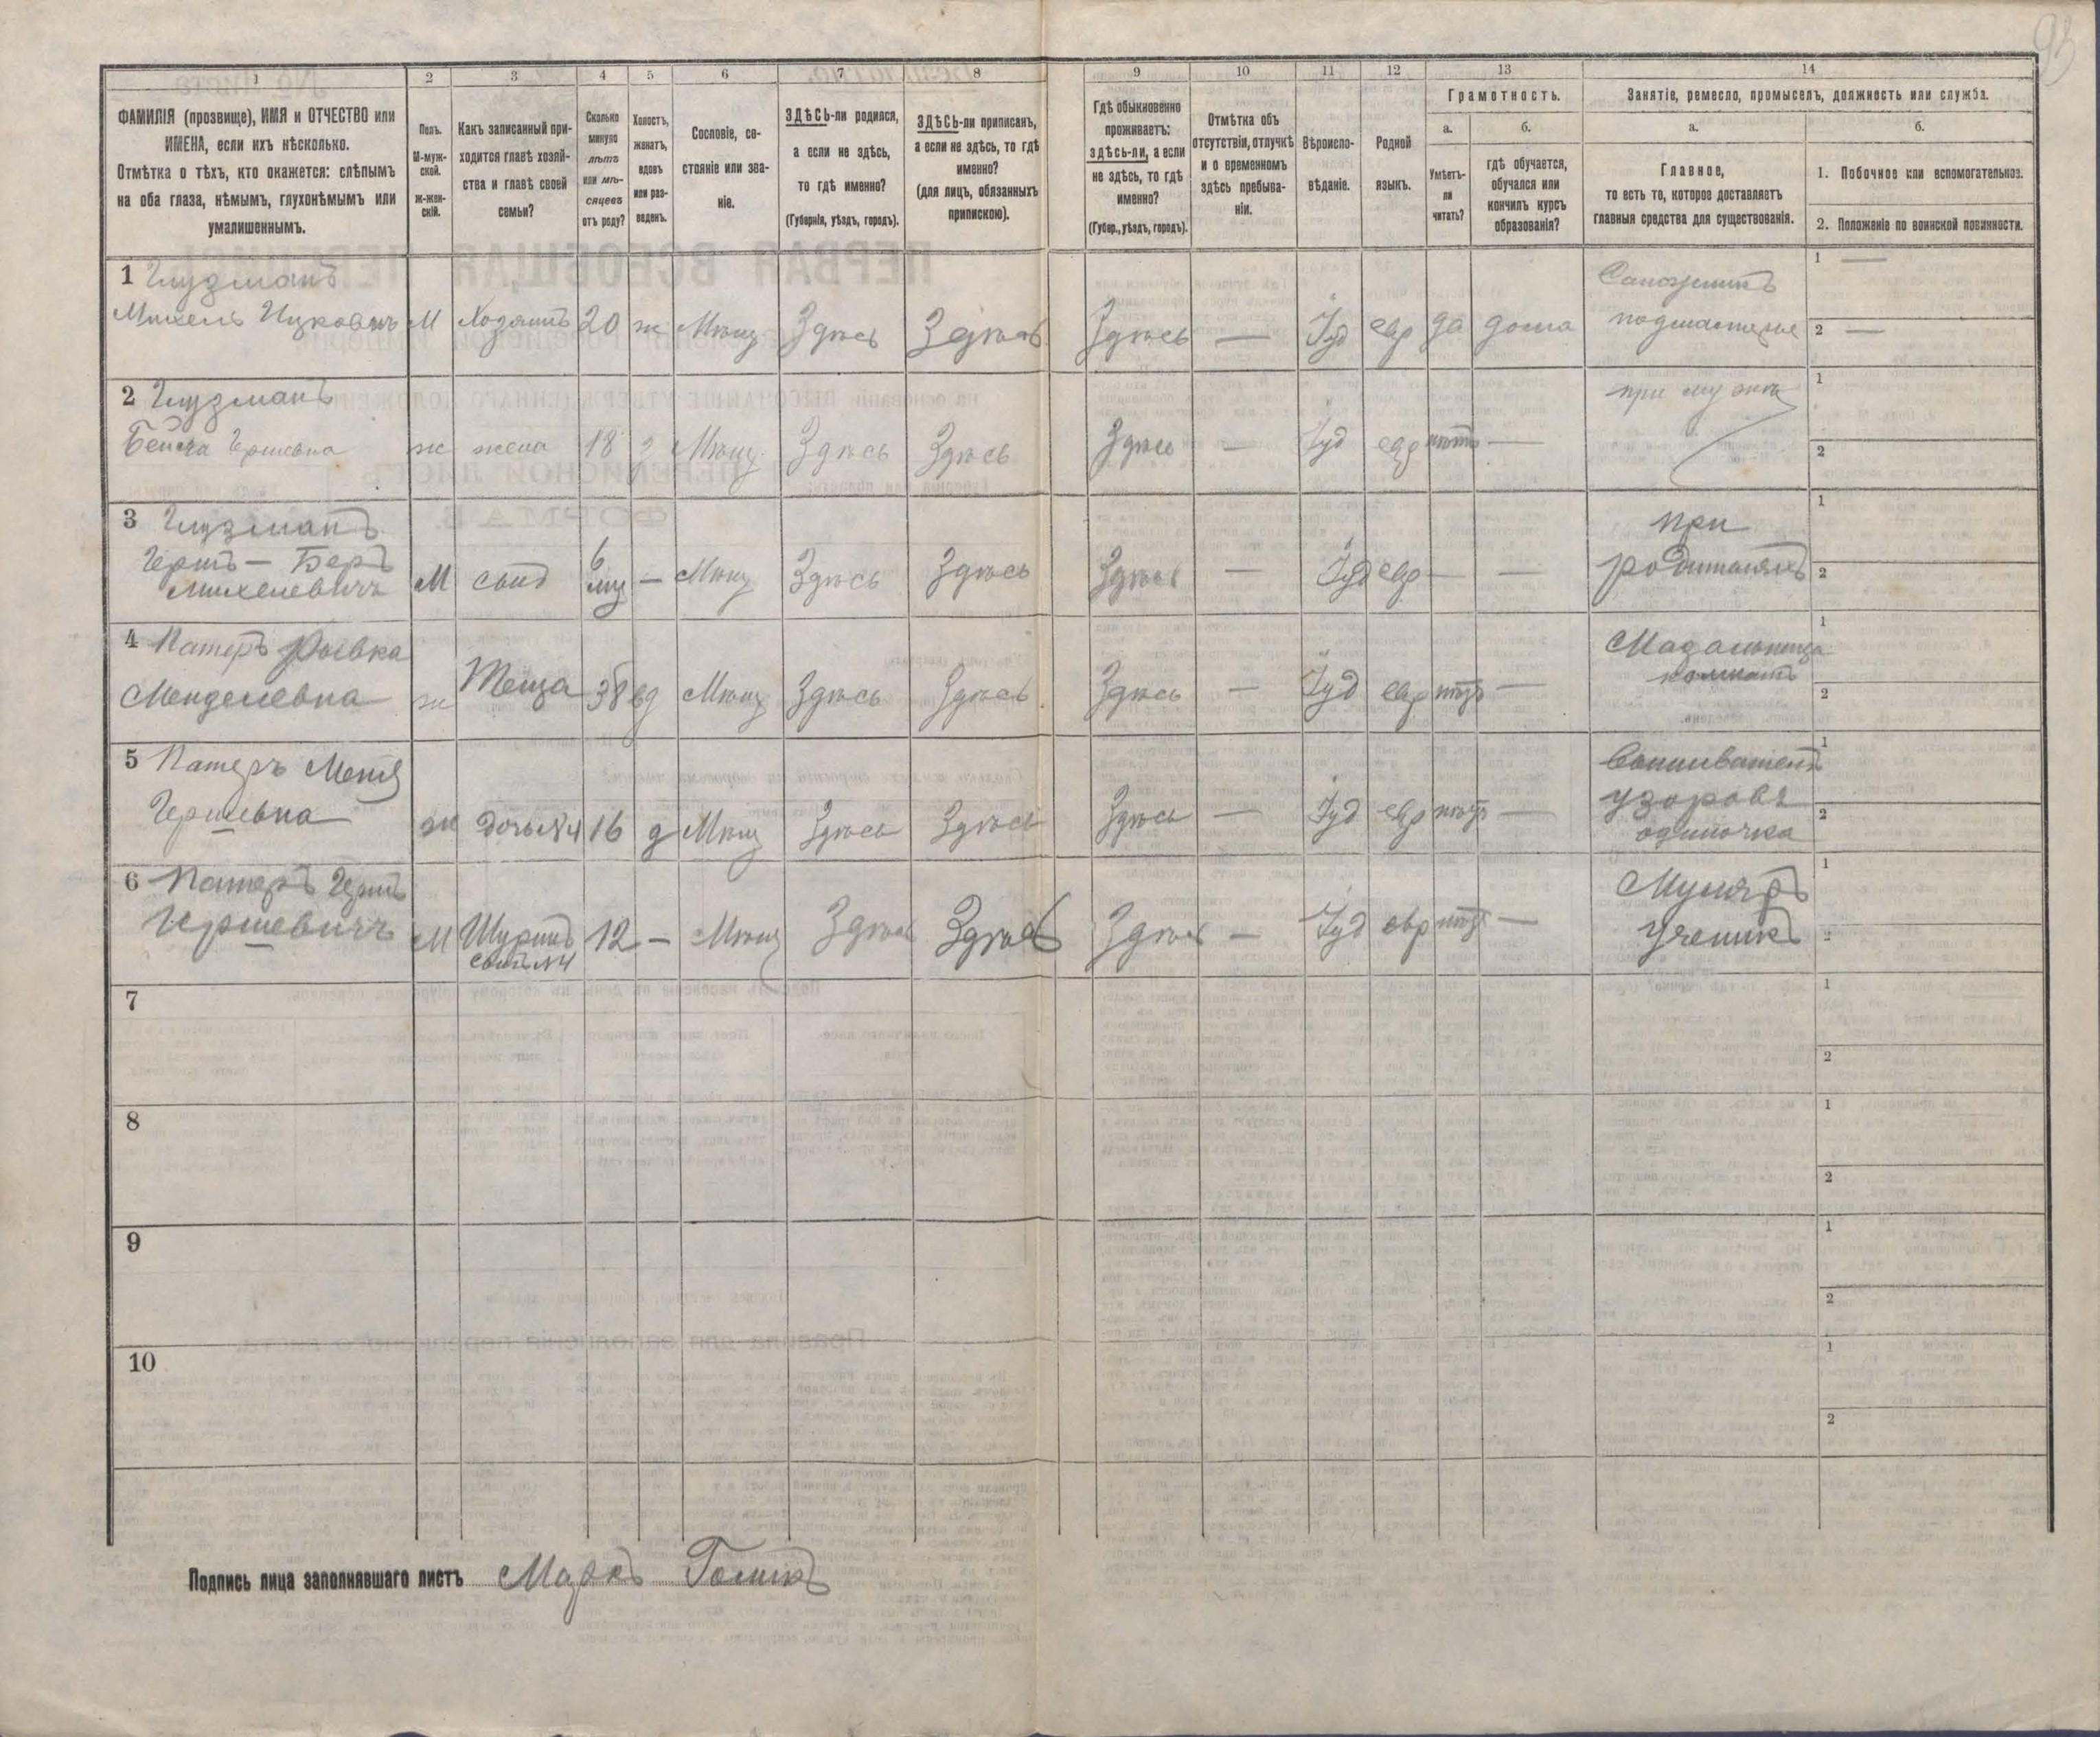 93
1 2 3 4 5 6 7 8 9 10 11 12 13 14
ФАМИЛІЯ (прозвище), ИМЯ и ОТЧЕСТВО или
ИМЕНА, если ихъ нѣсколько.
Отмѣтка о тѣхъ, кто окажется: слѣпымъ
на оба глаза, нѣмымъ, глухонѣмымъ или
умалишеннымъ.
Полъ.
М-муж-
ской.
Ж-жен-
скій.
Какъ записанный при-
ходится главѣ хозяй-
ства и главѣ своей
семьи?
Сколько
минуло
лѣтъ
или мѣ-
сяцевъ
отъ роду?
Холостъ,
женатъ,
вдовъ
или раз-
веденъ.
Сословіе, со-
стояніе или зва-
ніе.
ЗДѢСЬ-ли родился,
а если не здѣсь,
то гдѣ именно?
(Губернія, уѣздъ, городъ).
ЗДѢСЬ-ли приписанъ,
а если не здѣсь, то гдѣ
именно?
(для лицъ, обязанныхъ
припискою).
Гдѣ обыкновенно
проживаетъ:
здѣсь-ли, а если
не здѣсь, то гдѣ
именно?
(Губер., уѣздъ, городъ).
Отмѣтка объ
отсутствіи, отлучкѣ
и о временномъ
здѣсь пребыва-
ніи.
Вѣроиспо-
вѣданіе.
Родной
языкъ.
Грамотность.
а.
Умѣетъ-
ли
читать?
б.
гдѣ обучается,
обучался или
кончилъ курсъ
образованія?
Занятіе, ремесло, промыселъ, должность или служба.
а.
Главное,
то есть то, которое доставляетъ
главныя средства для существованія.
б.
1. Побочное или вспомогательное.
2. Положеніе по воинской повинности.
1 Глузманъ
Михель Ицковичъ М Хозяинъ 20 ж Мѣщ Здѣсь Здѣсь Здѣсь — Іуд евр да дома
Сапожникъ
подмастерье
1 —
2 —
2 Глузманъ
Гершевна ж жена 18 з Мѣщ. Здѣсь Здѣсь Здѣсь — Іуд евр нѣтъ —
при мужѣ
1
2
3 Глузманъ
Гершъ — Беръ
Михелевичъ М сынъ 6 мц — Мѣщ Здѣсь Здѣсь Здѣсь — Іуд евр — —
при
родителяхъ
1
2
4 Патеръ Рывка
Менделевна ж Теща 38 вд Мѣщ Здѣсь Здѣсь Здѣсь — Іуд евр нѣтъ —
комнатъ
1
2
5 Патеръ Меня
Гершевна ж дочь №4 16 д Мѣщ Здѣсь Здѣсь Здѣсь — Іуд евр нѣтъ —
узоровъ
одиночка
1
2
6 Патеръ Гершъ
Гершевичъ М Шуринъ
сынъ №4 12 — Мѣщ Здѣсь Здѣсь Здѣсь — Іуд евр нѣтъ —
Муляръ
Ученикъ
1
2
7
1
2
8
1
2
9
1
2
10
1
2
Подпись лица заполнявшаго листъ Маркъ